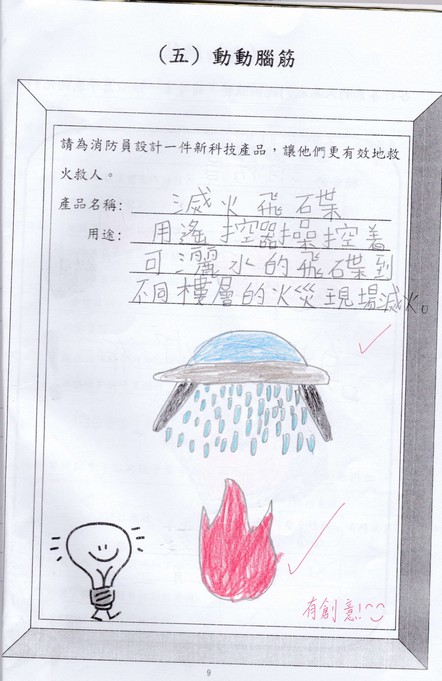 （五）動動腦筋
請為消防員設計一件新科技產品，讓他們更有效地救
火救人。
產品名稱：滅火飛碟
用途：用遙控器操控着
可灑水的飛碟到
不同樓層的火災現場滅火。
有創意!
9